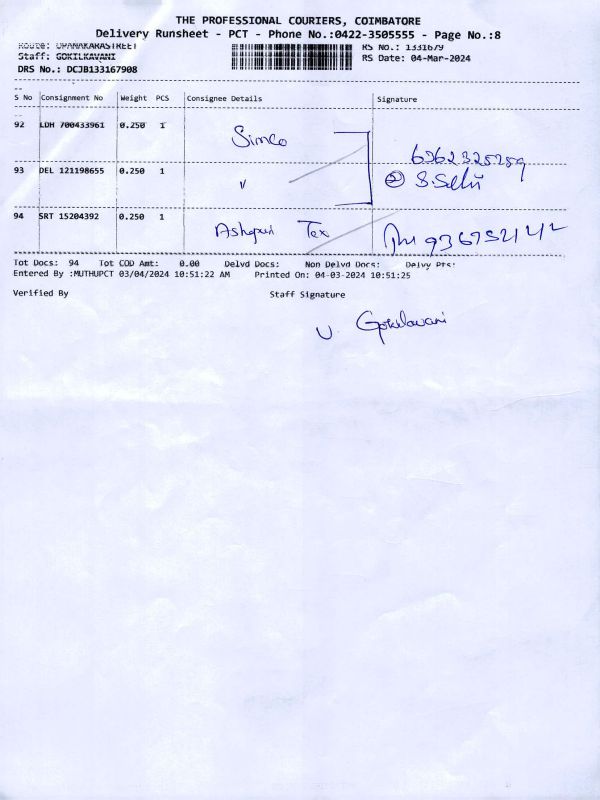 THE PROFESSIONAL COURIERS, COIMBATORE
Delivery Runsheet - PCT - Phone No.:0422-3505555 - Page No.:8
Route: UPANAKARASTREET RS No.: 1331679
Staff: GOKILKAVANI RS Date: 04-Mar-2024
DRS No.: DCJB133167908
S No Consignment No Weight PCS Consignee Details Signature
92 LDH 700433961 0.250 1 Simco
93 DEL 121198655 0.250 1 ② S.Selvi
94 SRT 15204392 0.250 1 Ashapuri Tex
Tot Docs: 94 Tot COD Amt: 0.00 Delvd Docs: Non Delvd Docs: Delvy Pts:
Entered By :MUTHUPCT 03/04/2024 10:51:22 AM Printed On: 04-03-2024 10:51:25
Verified By Staff Signature
V. Gokilavani